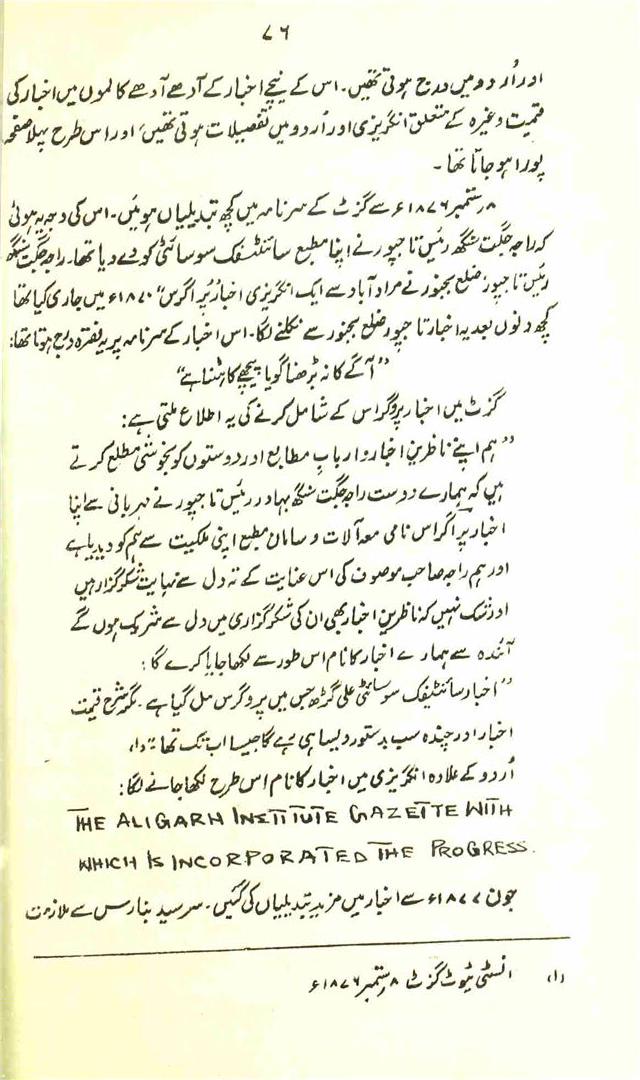 ۷۶
اور اُردو میں درج ہوتی تھیں۔ اس کے نیچے اخبار کے آدھے آدھے کالموں میں اخبار کی
قیمت وغیرہ کے متعلق انگریزی اور اُردو میں تفصیلات ہوتی تھیں، اور اس طرح پہلا صفحہ
پورا ہو جاتا تھا۔
۸ ستمبر ۱۸۷۶ء سے گزٹ کے سرنامہ میں کچھ تبدیلیاں ہوئیں۔ اس کی وجہ یہ ہوئی
کہ راجہ جگت سنگھ رئیس تاجپور نے اپنا مطبع سائنٹفک سوسائٹی کو دے دیا تھا۔ راجہ جگت سنگھ
رئیس تاجپور ضلع بجنور نے مراد آباد سے ایک انگریزی اخبار "پراگرس" ۱۸۷۰ء میں جاری کیا تھا
کچھ دنوں بعد یہ اخبار تاجپور ضلع بجنور سے نکلنے لگا۔ اس اخبار کے سرنامہ پر یہ فقرہ درج ہوتا تھا:
"آگے کا نہ بڑھنا گویا پیچھے کا ہٹنا ہے"
گزٹ میں اخبار پروگراس کے شامل کرنے کی یہ اطلاع ملتی ہے:
"ہم اپنے ناظرینِ اخبار و اربابِ مطابع اور دوستوں کو بخوشی مطلع کرتے
ہیں کہ ہمارے دوست راجہ جگت سنگھ بہادر رئیس تاجپور نے مہربانی سے اپنا
اخبار پراگراس نامی معہ آلات و سامان مطبع اپنی ملکیت سے ہم کو دیدیا ہے
اور ہم راجہ صاحب موصوف کی اس عنایت کے تہ دل سے نہایت شکرگزار ہیں
اور شک نہیں کہ ناظرینِ اخبار بھی ان کی شکرگزاری میں دل سے شریک ہوں گے
آئندہ سے ہمارے اخبار کا نام اس طور سے لکھا جایا کرے گا:
"اخبار سائنٹیفک سوسائٹی علی گڑھ جس میں پروگرس مل گیا ہے۔ مگر شرح قیمت
اخبار اور چندہ سب بدستور ویسا ہی رہے گا جیسا اب تک تھا"(۱)
اُردو کے علاوہ انگریزی میں اخبار کا نام اس طرح لکھا جانے لگا:
THE ALIGARH INSTITUTE GAZETTE WITH
WHICH IS INCORPORATED THE PROGRESS.
جون ۱۸۷۷ء سے اخبار میں مزید تبدیلیاں کی گئیں۔ سرسید بنارس سے ملازمت
(۱) انسٹی ٹیوٹ گزٹ ۸ ستمبر ۱۸۷۶ء